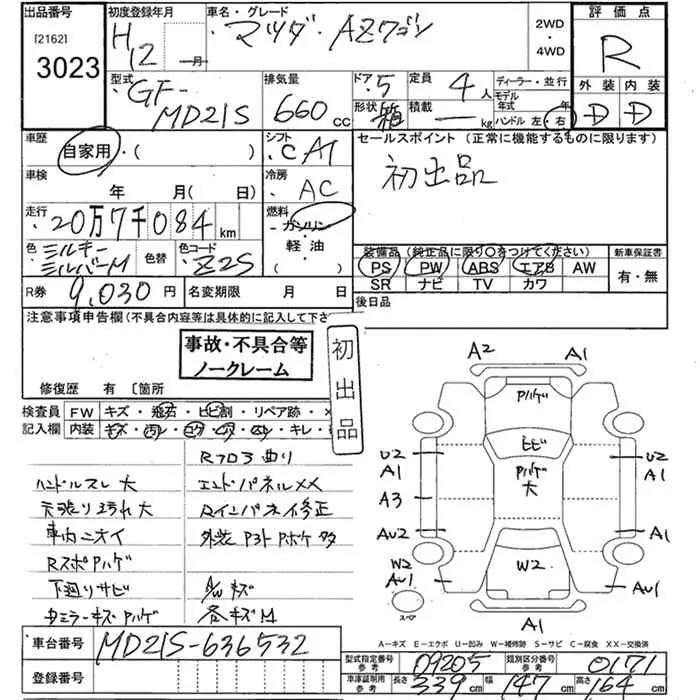 出品番号
[2162]
3023
初度登録年月
H12 年 月
車名・グレード
マツダ・AZワゴン
2WD
・
4WD
評価点
R
外装 内装
D D
型式
GF-
MD21S
排気量
660 cc
ドア 5
定員 4 人
形状 箱
積載 — kg
ディーラー・並行
モデル年式 年
ハンドル 左・右
車歴
自家用・( )
シフト
CAT
セールスポイント (正常に機能するものに限ります)
初出品
車検
年 月( 日)
冷房
AC
走行
20万7千084 km
燃料
ガソリン
軽油
( )
色
ミルキー
シルバーM
色替
色コード
Z2S
装備品 (純正品に限り○をつけてください)
PS PW ABS エアB AW
SR ナビ TV カワ
新車保証書
有・無
R券 9,030 円
名変期限 月 日
後日品
注意事項申告欄(不具合内容等は具体的に記入して下さ
事故・不具合等
ノークレーム
初出品
修復歴 有〔箇所
検査員
記入欄
FW キズ・飛石・ヒビ割・リペア跡・×
内装 キズ・・コゲ・・・キレ・
Rフロア曲り
ハンドルスレ大
エンドパネルXX
天張り汚れ大
Rインパネイ修正
車内ニオイ
外装Pヨトボケ多
RスポPハゲ
下廻りサビ
A/Wキズ
ミラーキズPハゲ
各キズM
A2
A1
Pハゲ
ヒビ
Pハゲ
大
U2
A1
U2
A1
A3
AU2
A1
W2
AU1
W2
AU1
スペア
A1
A-キズ E-エクボ U-凹み W-補修跡 S-サビ C-腐食 XX-交換済
車台番号
MD21S-636532
登録番号
型式指定番号
参考
09205
類別区分番号
参考
0171
車庫証明用
参考
長さ 339 cm
幅 147 cm
高さ 164 cm